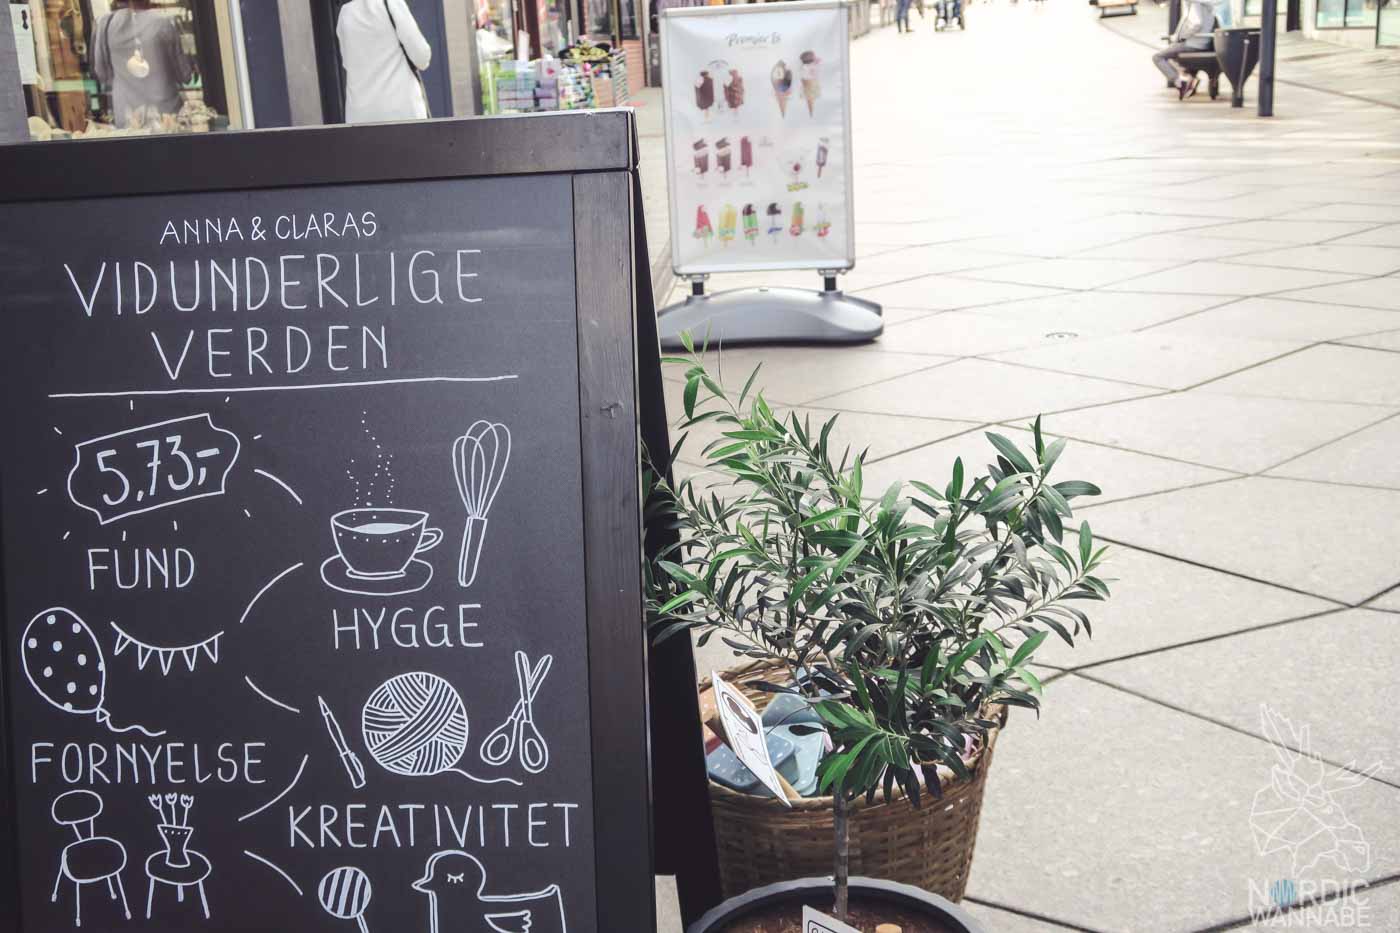 ANNA & CLARAS
VIDUNDERLIGE
VERDEN
5,73,-
FUND
HYGGE
FORNYELSE
KREATIVITET
Premier Is
NORDIC
WANNABE